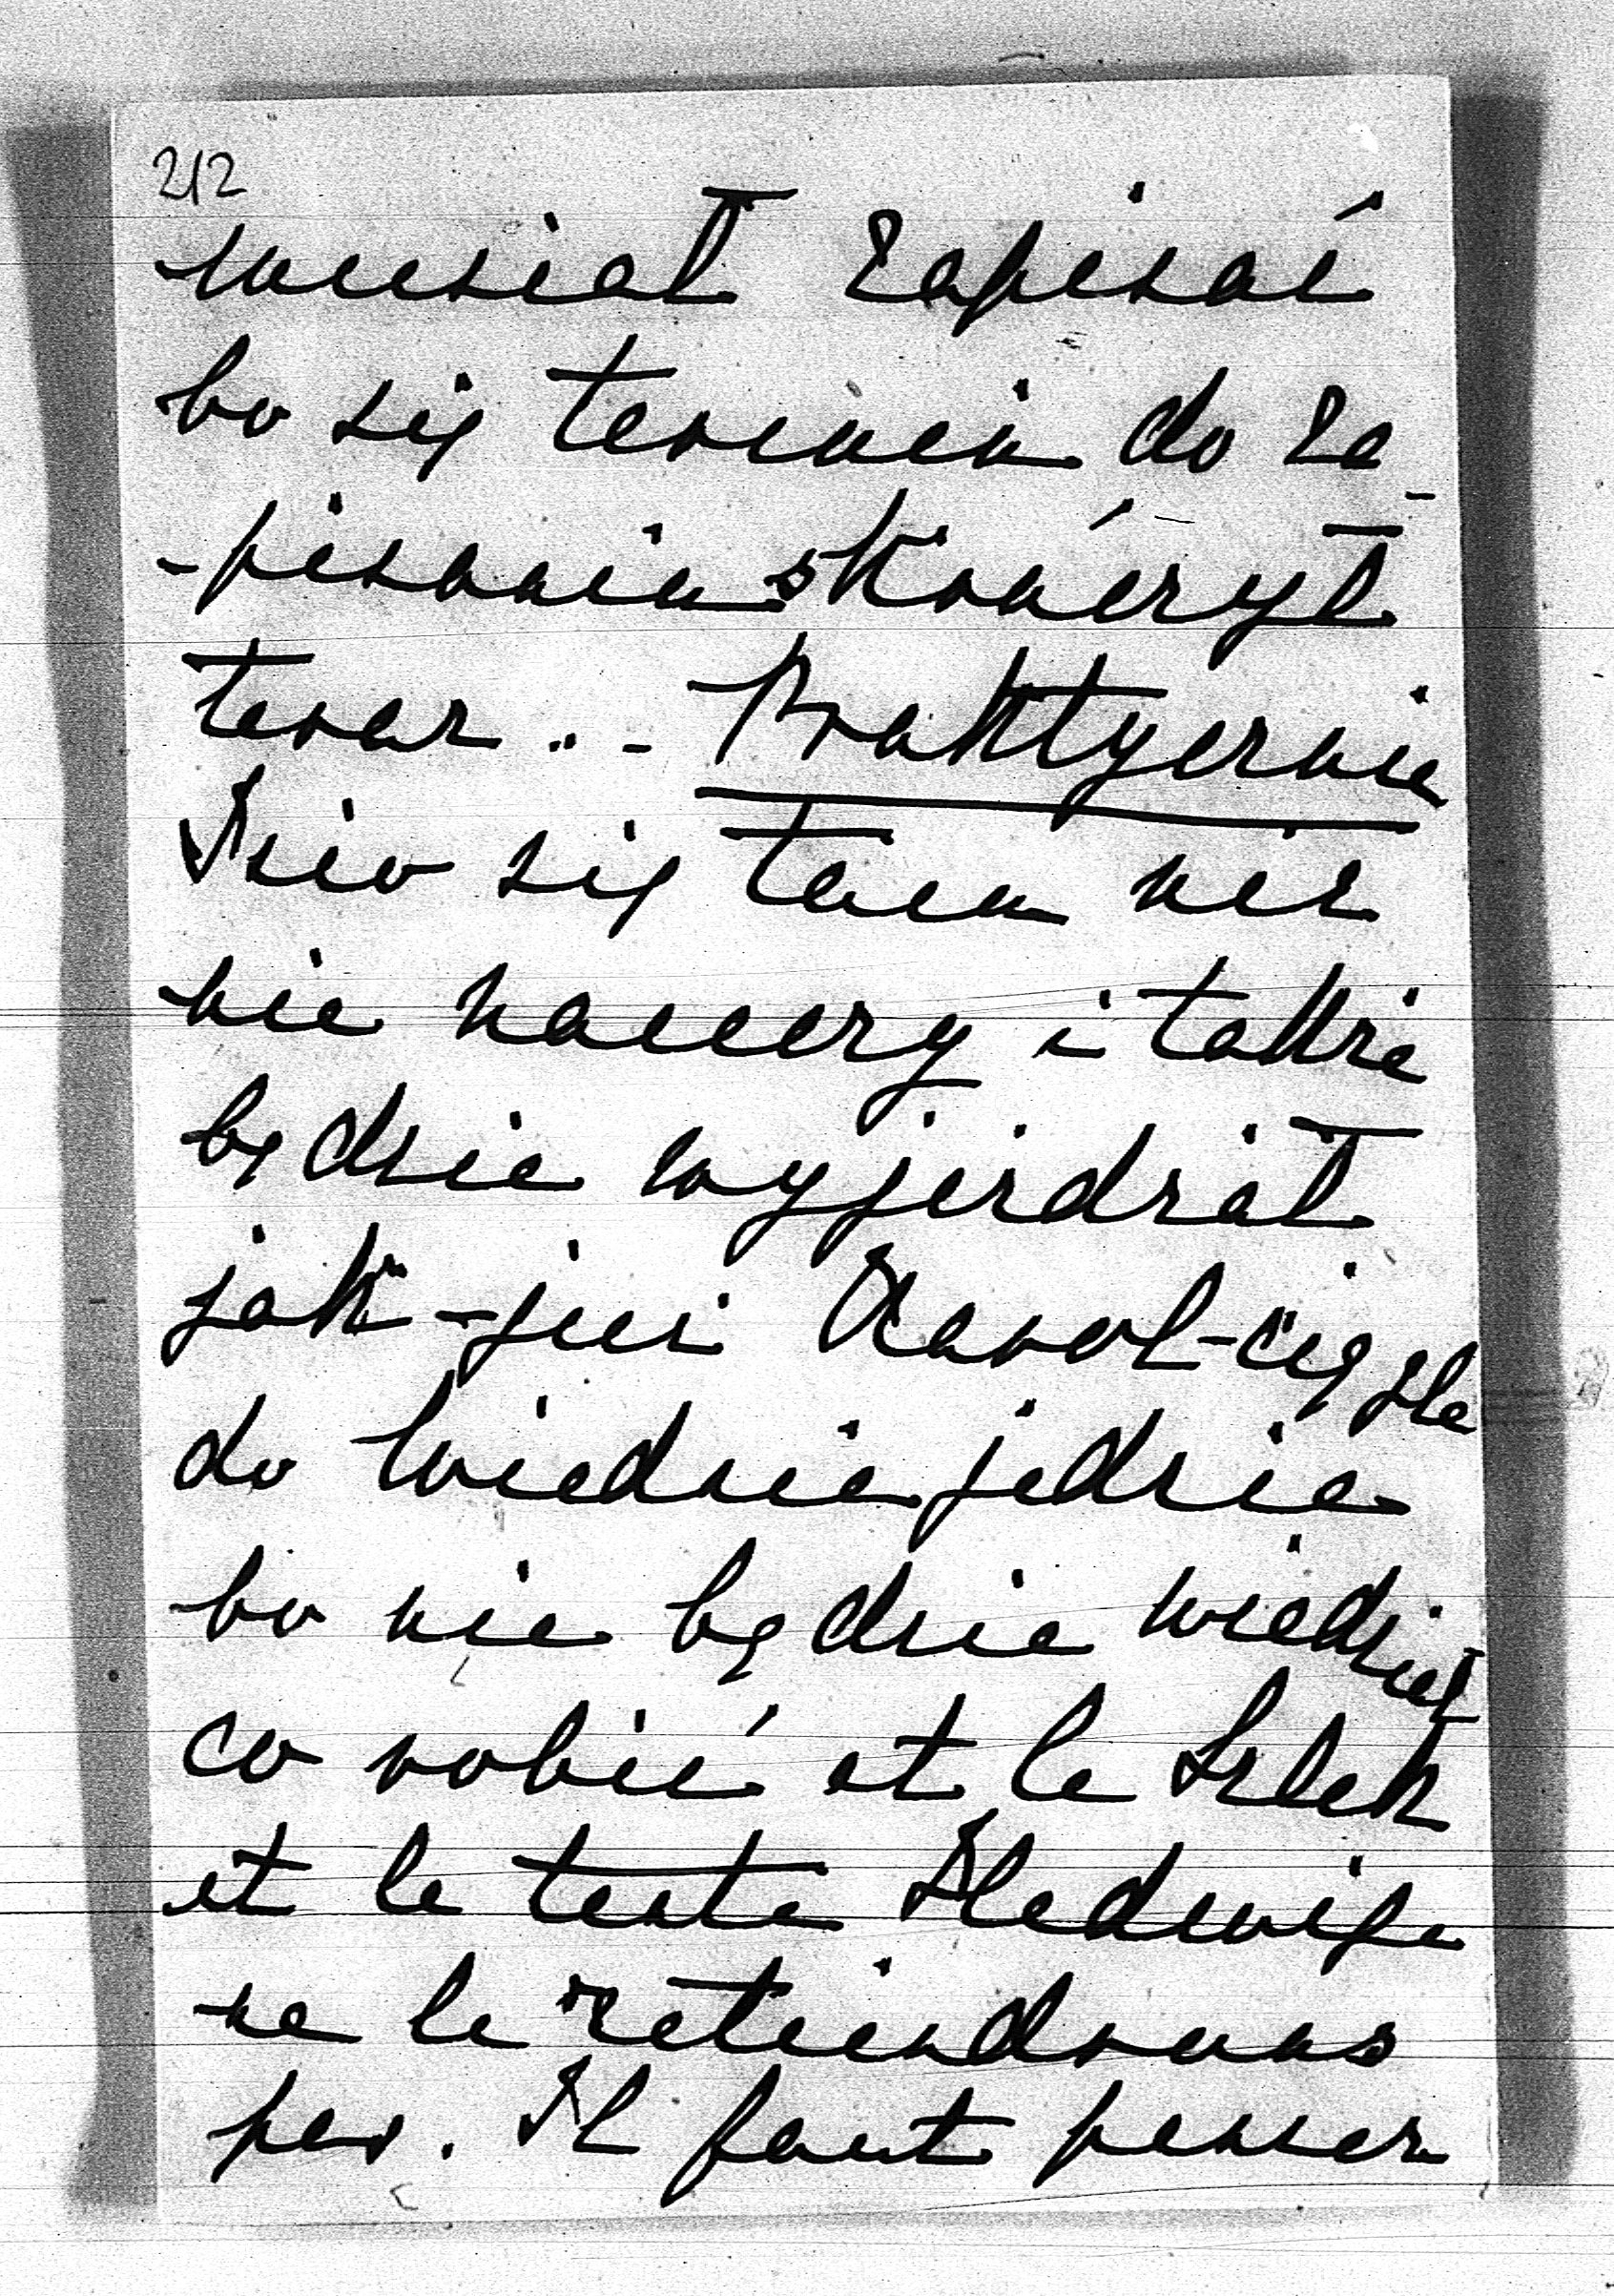 212
musiał zapisać
bo się termin do za-
-pisania skończył
teraz... Praktycznie
Isio się tam nic
nie nauczy i także
będzie wyjeżdżał
jak-już Karol-ciągle
do Wiednia jeździe
bo nie będzie wiedział
co robić et le Szlak
et le teste Hedwige
ne le retiendrons
pas. Il faut penser